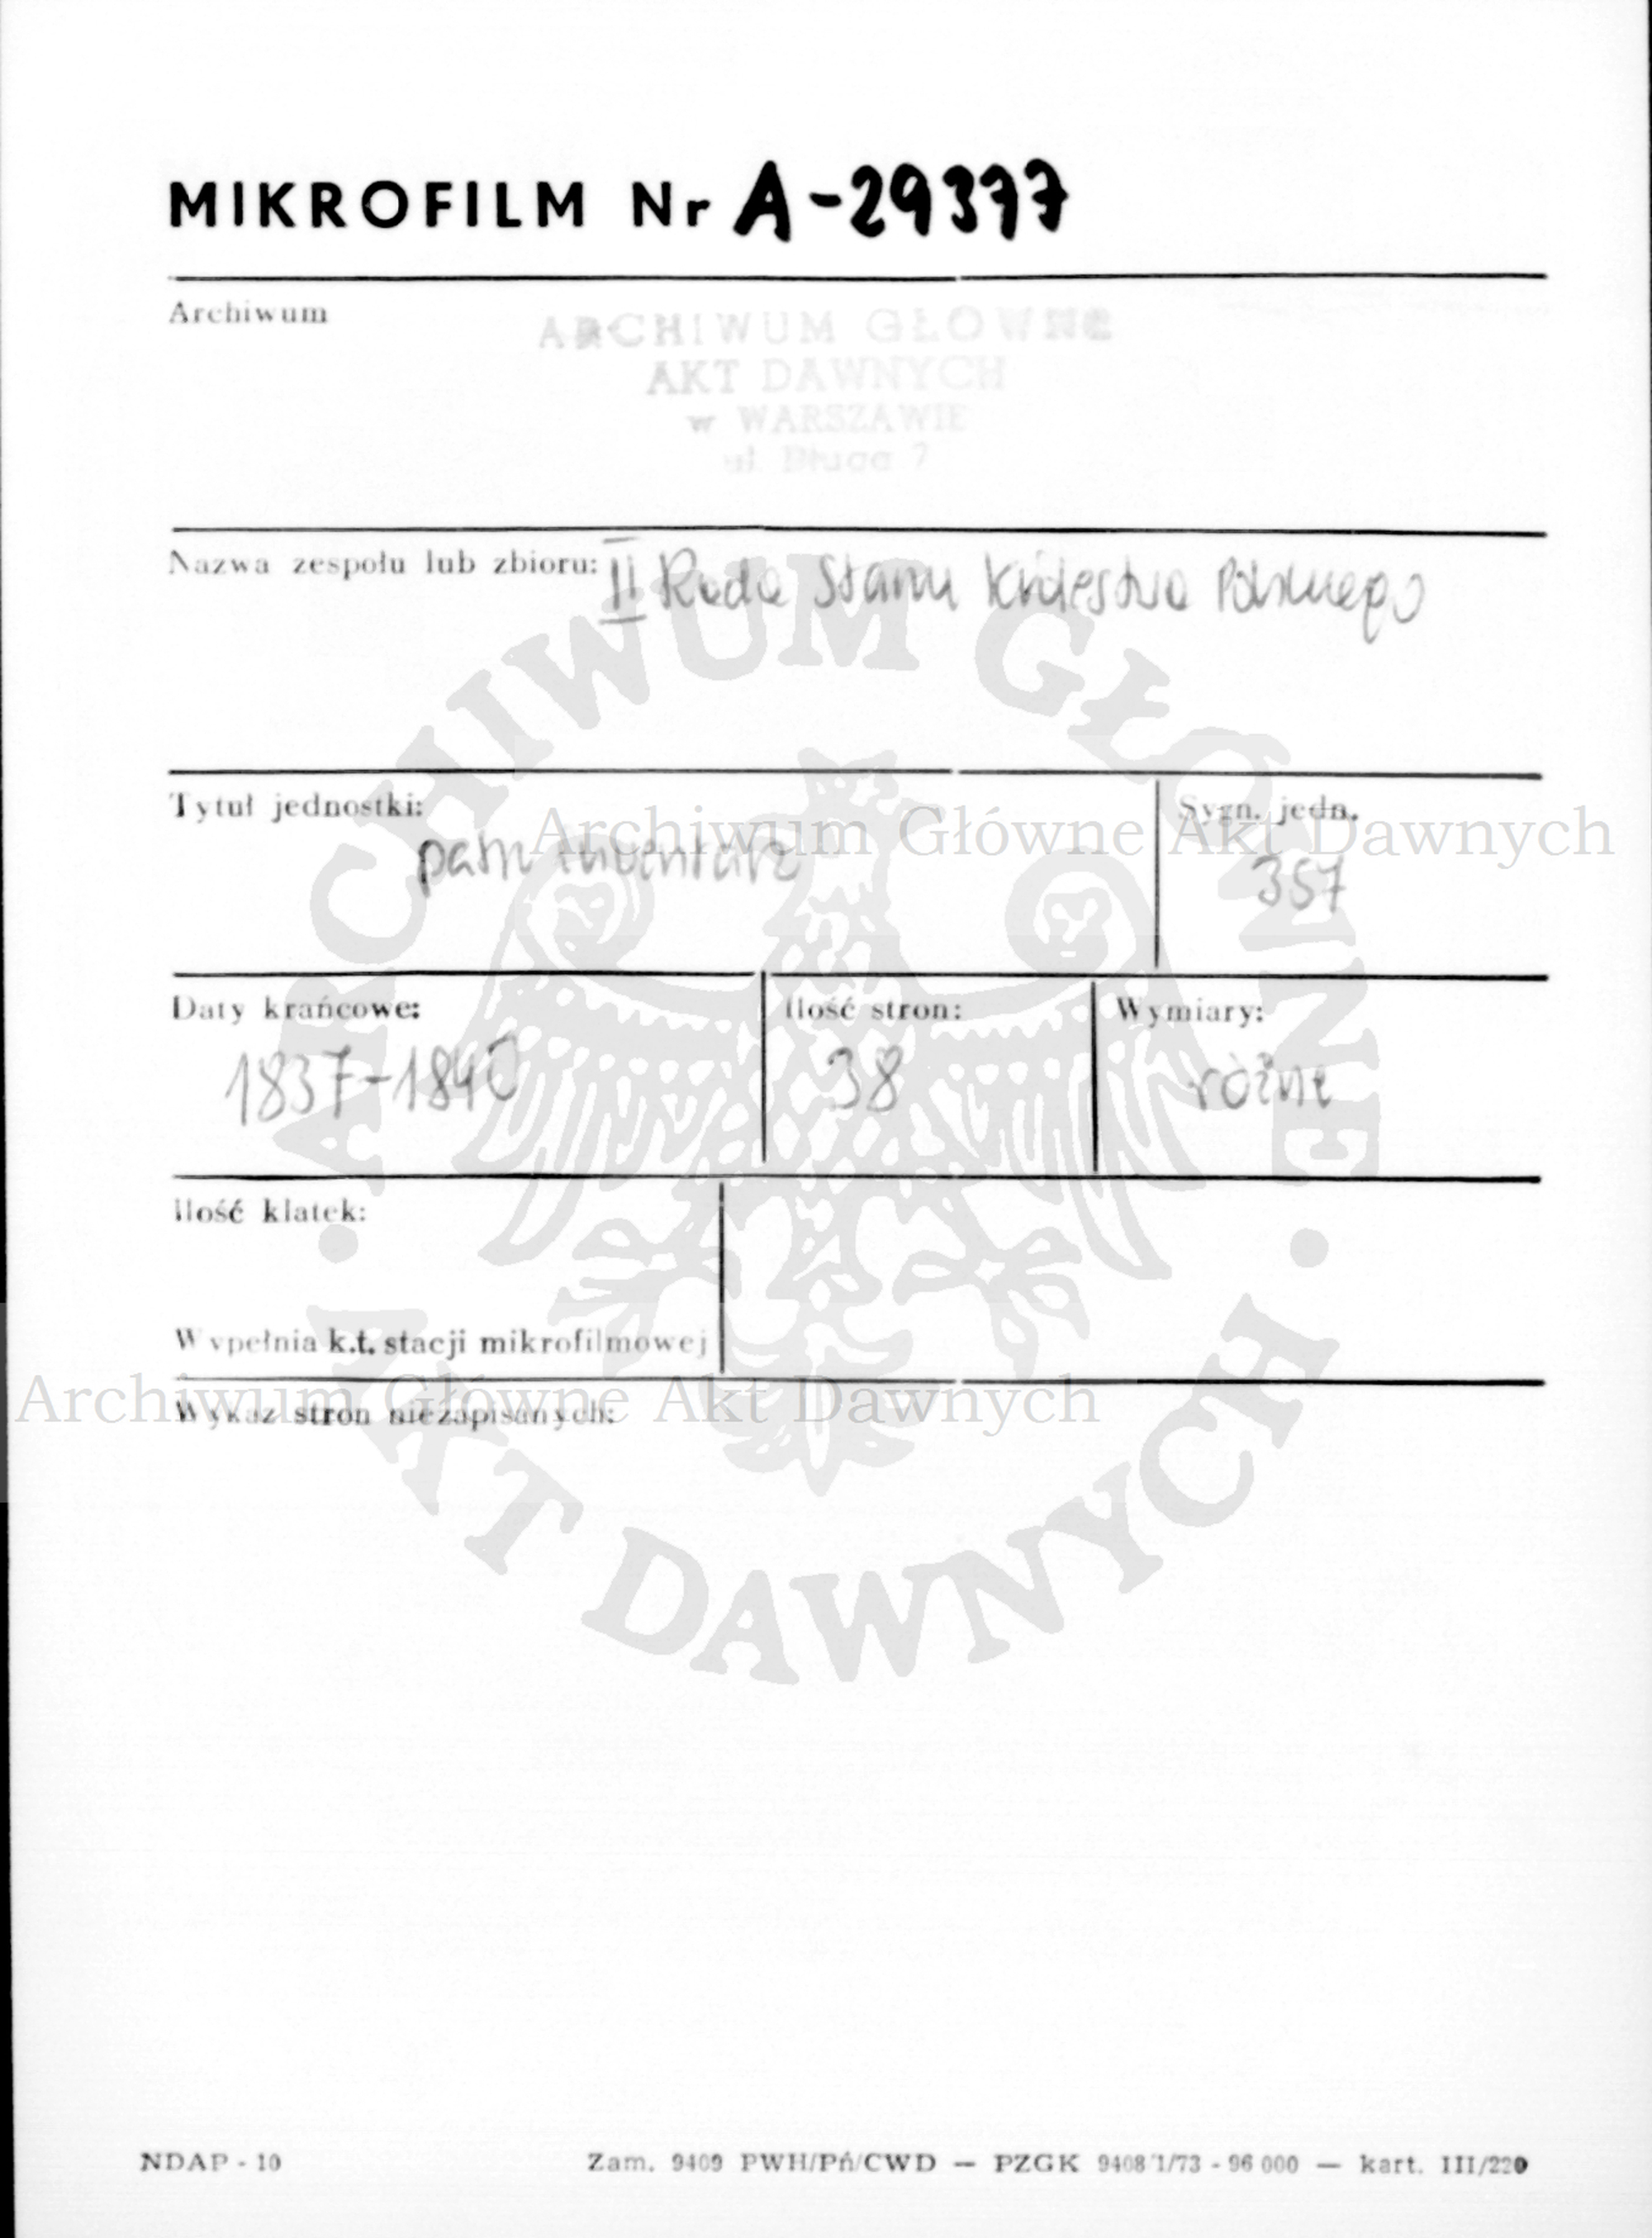 MIKROFILM Nr A-29377
Archiwum
ARCHIWUM GŁOWNE
AKT DAWNYCH
w WARSZAWIE
ul. Długa 7
Nazwa zespołu lub zbioru: II Rada Stanu Królestwa Polskiego
Tytuł jednostki:
patrz inwentarz
Sygn. jedn.
357
Archiwum Główne Akt Dawnych
Daty krańcowe:
1837-1840
Ilość stron:
38
Wymiary:
różne
Ilość klatek:
Wypełnia k.t. stacji mikrofilmowej
Archiwum Główne Akt Dawnych
Wykaz stron niezapisanych:
ARCHIWUM GŁÓWNE
AKT DAWNYCH
NDAP - 10
Zam. 9409 PWH/Pń/CWD — PZGK 9408/1/73 - 96 000 — kart. III/220